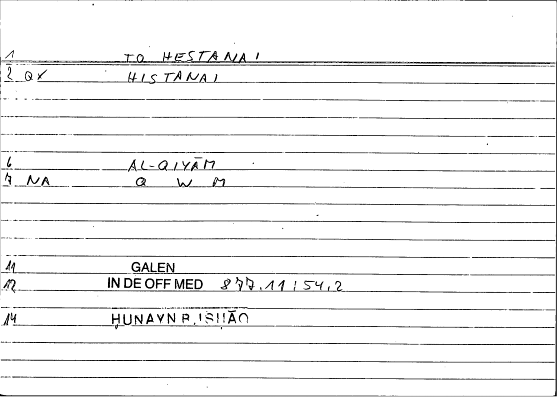 1 TO HESTANAI
2 QX HISTANAI
6 AL-QIYĀM
7 NA Q W M
11 GALEN
12 IN DE OFF MED 877.11 : 54.2
14 ḤUNAYN B. ISḤĀQ